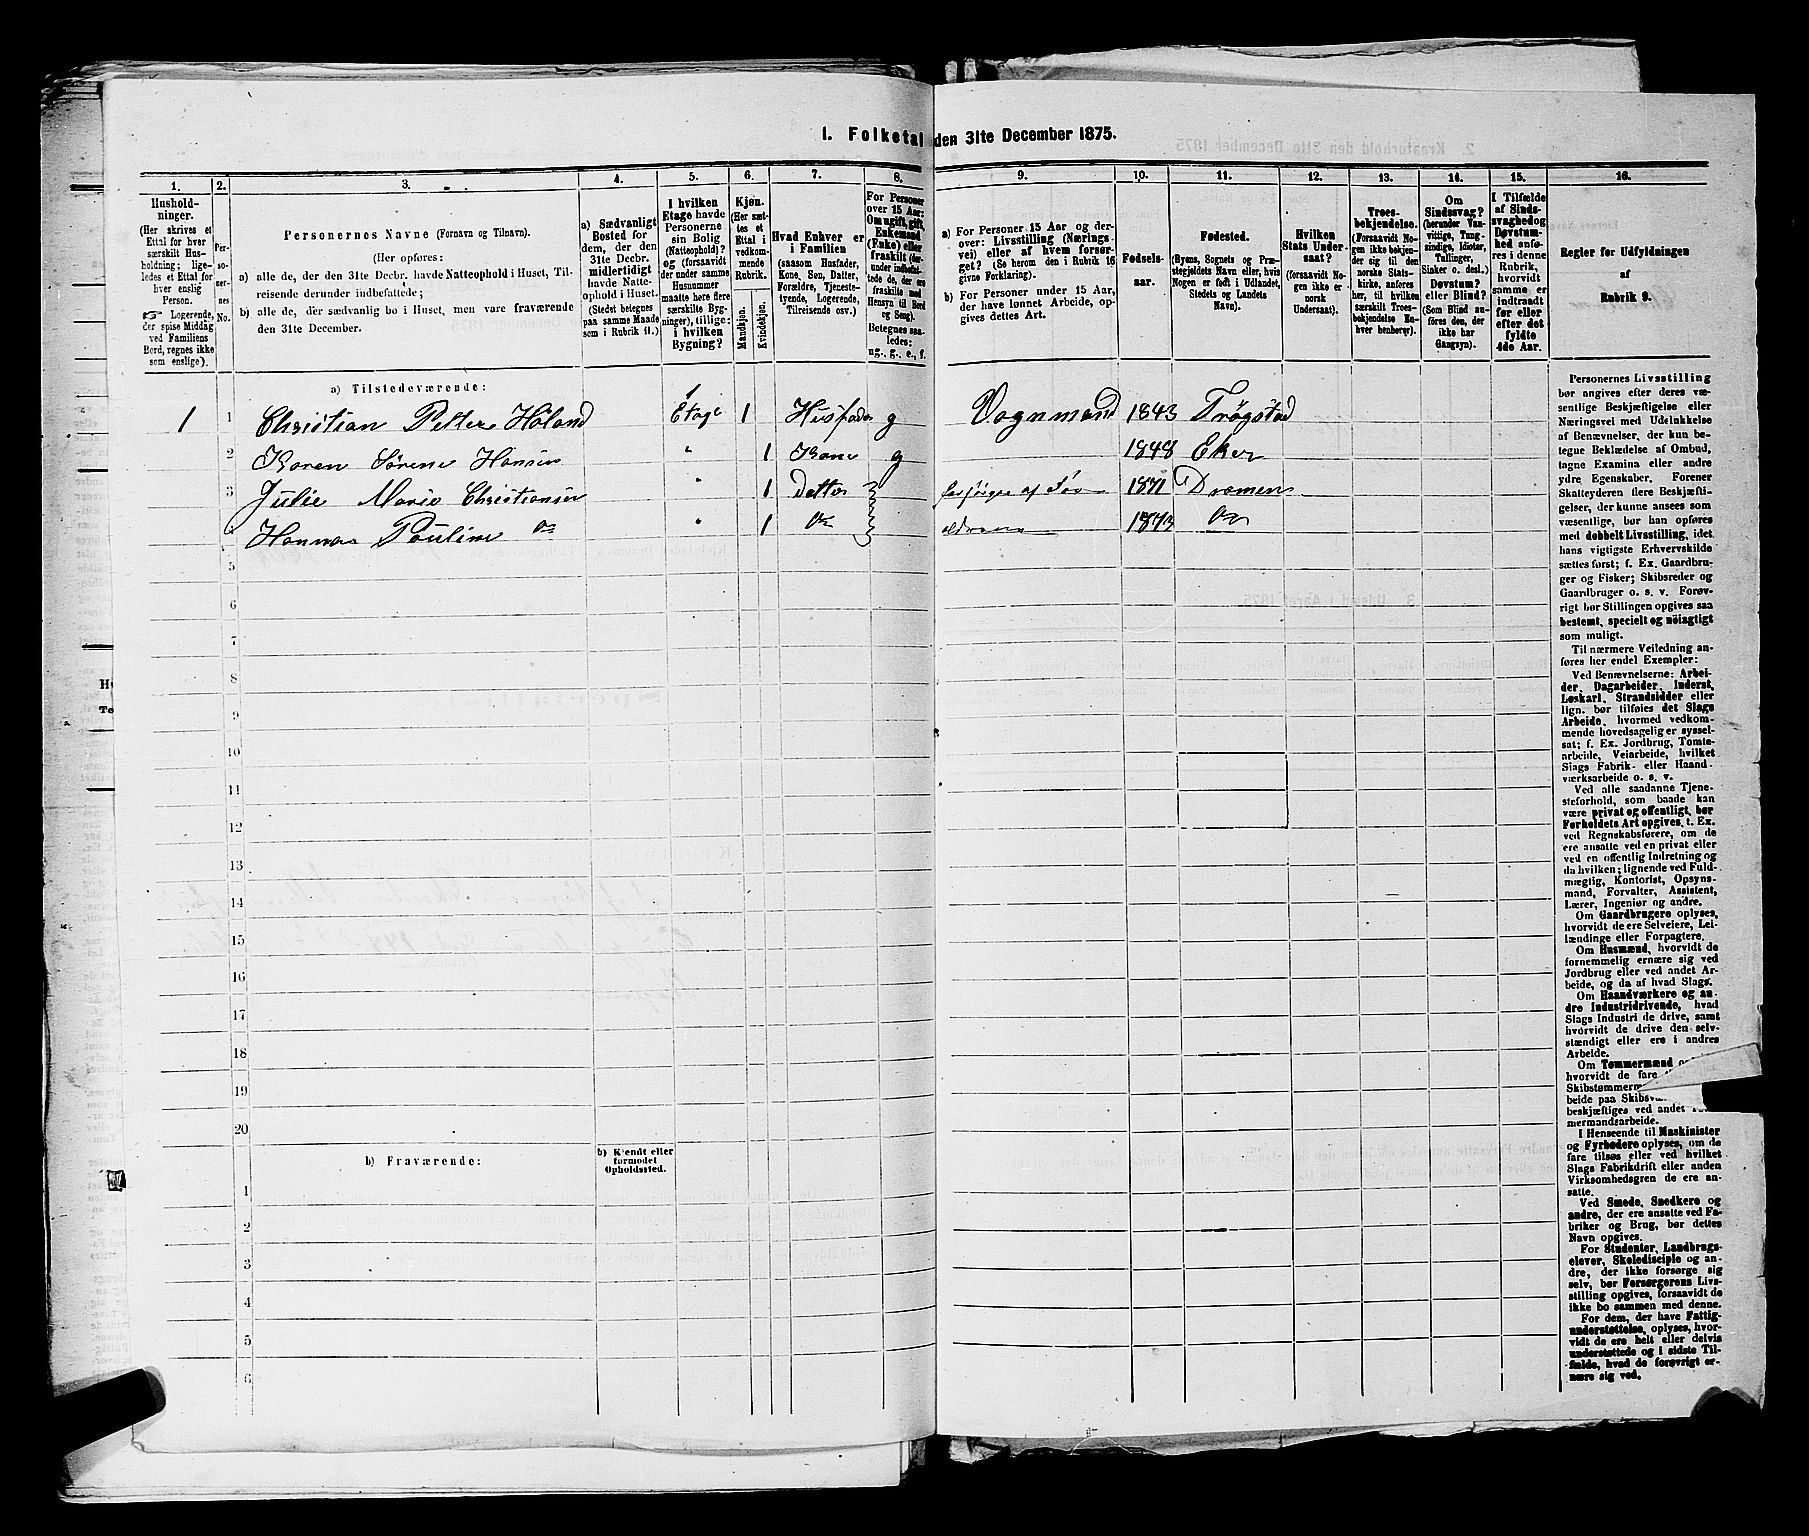 1. Folketal den 31te December 1875.
1.
2.
3.
4.
5.
6.
7.
8.
9.
10.
11.
12.
13.
14.
15.
16.
Hushold-
ninger.
(Her skrives et
Ettal for hver
særskilt Hus-
holdning; lige-
ledes et Ettal for
hver enslig
Person.
☞ Logerende,
der spise Middag
ved Familiens
Bord, regnes ikke
som enslige).
Per-
so-
ner-
nes
No.
Personernes Navne (Fornavn og Tilnavn).
(Her opføres:
a) alle de, der den 31te Decbr. havde Natteophold i Huset, Til-
reisende derunder indbefattede;
b) alle de, der sædvanlig bo i Huset, men vare fraværende
den 31te December.
a) Sædvanligt
Bosted for
dem, der den
31te Decbr.
midlertidigt
havde Natte-
ophold i Huset.
(Stedet betegnes
paa samme Maade
som i Rubrik 11.)
I hvilken
Etage havde
Personerne
sin Bolig
(Natteophold)?
og (forsaavidt
der under samme
Husnummer
maatte høre flere
særskilte Byg-
ninger), tillige:
i hvilken
Bygning?
Kjøn.
(Her sæt-
tes et
Ettal i
vedkom-
mende
Rubrik.
Mandkjøn.
Kvindekjøn.
Hvad Enhver er
i Familien
(saasom Husfader,
Kone, Søn, Datter,
Forældre, Tjeneste-
tyende, Logerende,
Tilreisende osv.)
For Personer
over 15 Aar:
Om ugift, gift,
Enkemand
(Enke) eller
fraskilt (der-
under indbefat-
tede de, der ere
fraskilte med
Hensyn til Bord
og Seng).
Betegnes saa-
ledes:
ug., g., e., f.
a) For Personer 15 Aar og der-
over: Livsstilling (Nærings-
vei) eller af hvem forsør-
get? (Se herom den i Rubrik 16
givne Forklaring).
b) For Personer under 15 Aar,
der have lønnet Arbeide, op-
gives dettes Art.
Fødsels-
aar.
Fødested.
(Byens, Sognets og Præ-
stegjeldets Navn eller, hvis
Nogen er født i Udlandet,
Stedets og Landets
Navn).
Hvilken
Stats Under-
saat?
(forsaavidt No-
gen ikke er
norsk
Undersaat).
Troes-
bekjendelse.
(Forsaavidt No-
gen ikke bekjen-
der sig til den
norske Stats-
kirke, anføres
her, til hvilken
særskilt Troes-
bekjendelse En-
hver henhører).
Om
Sindssvag?
(herunder Van-
vittige, Tung-
sindige, Idioter,
Tullinger,
Sinker o. desl.)
Døvstum?
eller Blind?
(Som Blind an-
føres den, der
ikke har
Gangsyn).
I Tilfælde
af Sinds-
svaghed og
Døvstum-
hed anfø-
res i denne
Rubrik,
hvorvidt
samme er
indtraadt
før eller
efter det
fyldte
4de Aar.
Regler for Udfyldningen
af
Rubrik 9.
a) Tilstedeværende:
1 1 Christian Petter Høland 1 Etage 1 Husfader g Vognmand 1843 Trøgstad
2 Karen Sørene Hansen " 1 Kone g 1848 Eker
3 Julie Marie Christiansen " 1 Datter forsørges af For 1871 Dramen
4 Hanna Pauline Do " 1 Do ældrene 1873 Do
5
6
7
8
9
10
11
12
13
14
15
16
17
18
19
20
b) Fraværende:
b) Kjendt eller
formodet
Opholdssted.
1
2
3
4
5
6
Personernes Livsstilling
bør angives efter deres væ-
sentlige Beskjæftigelse eller
Næringsvei med Udelukkelse
af Benævnelser, der kun be-
tegne Beklædelse af Ombud,
tagne Examina eller andre
ydre Egenskaber. Forener
Skatteyderen flere Beskjæfti-
gelser, der kunne ansees som
væsentlige, bør han opføres
med dobbelt Livsstilling, idet
hans vigtigste Erhvervskilde
sættes først; f. Ex. Gaardbru-
ger og Fisker; Skibsreder og
Gaardbruger o. s. v. Forøv-
rigt bør Stillingen opgives saa
bestemt, specielt og nøiagtigt
som muligt.
Til nærmere Veiledning an-
føres her endel Exempler:
Ved Benævnelserne: Arbei-
der, Dagarbeider, Inderst,
Løskarl, Strandsidder eller
lign. bør tilføies det Slags
Arbeide, hvormed vedkom-
mende hovedsagelig er syssel-
sat; f. Ex. Jordbrug, Tomte-
arbeide, Veiarbeide, hvilket
Slags Fabrik- eller Haand-
værksarbeide o. s. v.
Ved alle saadanne Tjene-
steforhold, som baade kan
være privat og offentligt, bør
Forholdets Art opgives, t. Ex.
ved Regnskabsførere, om de
ere ansatte ved en privat eller
ved en offentlig Indretning og
da hvilken; lignende ved Fuld-
mægtig, Kontorist, Opsyns-
mand, Forvalter, Assistent,
Lærer, Ingeniør og andre.
Om Gaardbrugere oplyses,
hvorvidt de ere Selveiere, Lei-
lændinge eller Forpagtere.
Om Husmænd, hvorvidt de
fornemmelig ernære sig ved
Jordbrug eller ved andet Ar-
beide, og da af hvad Slags.
Om Haandværkere og an-
dre Industridrivende, hvad
Slags Industri de drive, samt
hvorvidt de drive den selv-
stændigt eller ere i andres
Arbeide.
Om Tømmermænd
hvorvidt de fare
Skibstømmerm
beide paa Skibsv
beskjæftiges ved andet
mermandsarbeide.
I Henseende til Maskinister
og Fyrbødere oplyses, om de
fare tilsøs eller ved hvilket
Slags Fabrikdrift eller anden
Virksomhedsgren de ere an-
satte.
Ved Smede, Snedkere og
andre, der ere ansatte ved Fa-
briker og Brug, bør dettes
Navn opgives.
For Studenter, Landbrugs-
elever, Skoledisciple og an-
dre, der ikke forsørge sig
selv, bør Forsørgerens Livs-
stilling opgives, forsaavidt de
ikke bo sammen med denne.
For dem, der have Fattig-
understøttelse, oplyses, hvor-
vidt de ere helt eller delvis
understøttede og i sidste Til-
fælde, hvad de forøvrigt er-
nære sig ved.